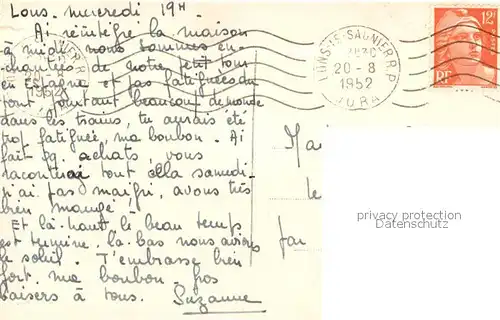 Lons. mercredi 19H
Ai réintégré la maison
à midi, nous sommes en-
chantées de notre petit tour
en Espagne et pas fatiguées du
tout pourtant beaucoup de monde
dans les trains, tu aurais été
trop fatiguée, ma bonbon. Ai
fait qq. achats, vous
raconterai tout cela samedi-
n'ai pas maigri, avons très
bien mangé -
Et là-haut le beau temps
est terminé, là-bas nous avions
le soleil. J'embrasse bien
fort, ma bonbon. gros
baisers à tous. Suzanne
LONS-LE-SAUNIER R.P.
20-8
1952
JURA
12F
RF
Ma
le
par
privacy protection
Datenschutz